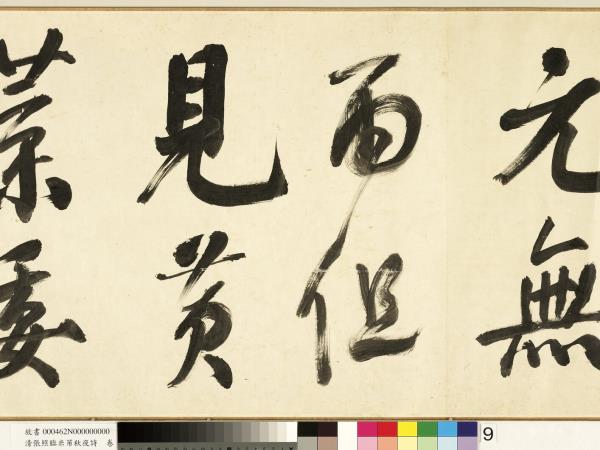 元無
雨但
見黃
葉委
故書 000462N000000000
清張照臨米芾秋夜詩 卷
9